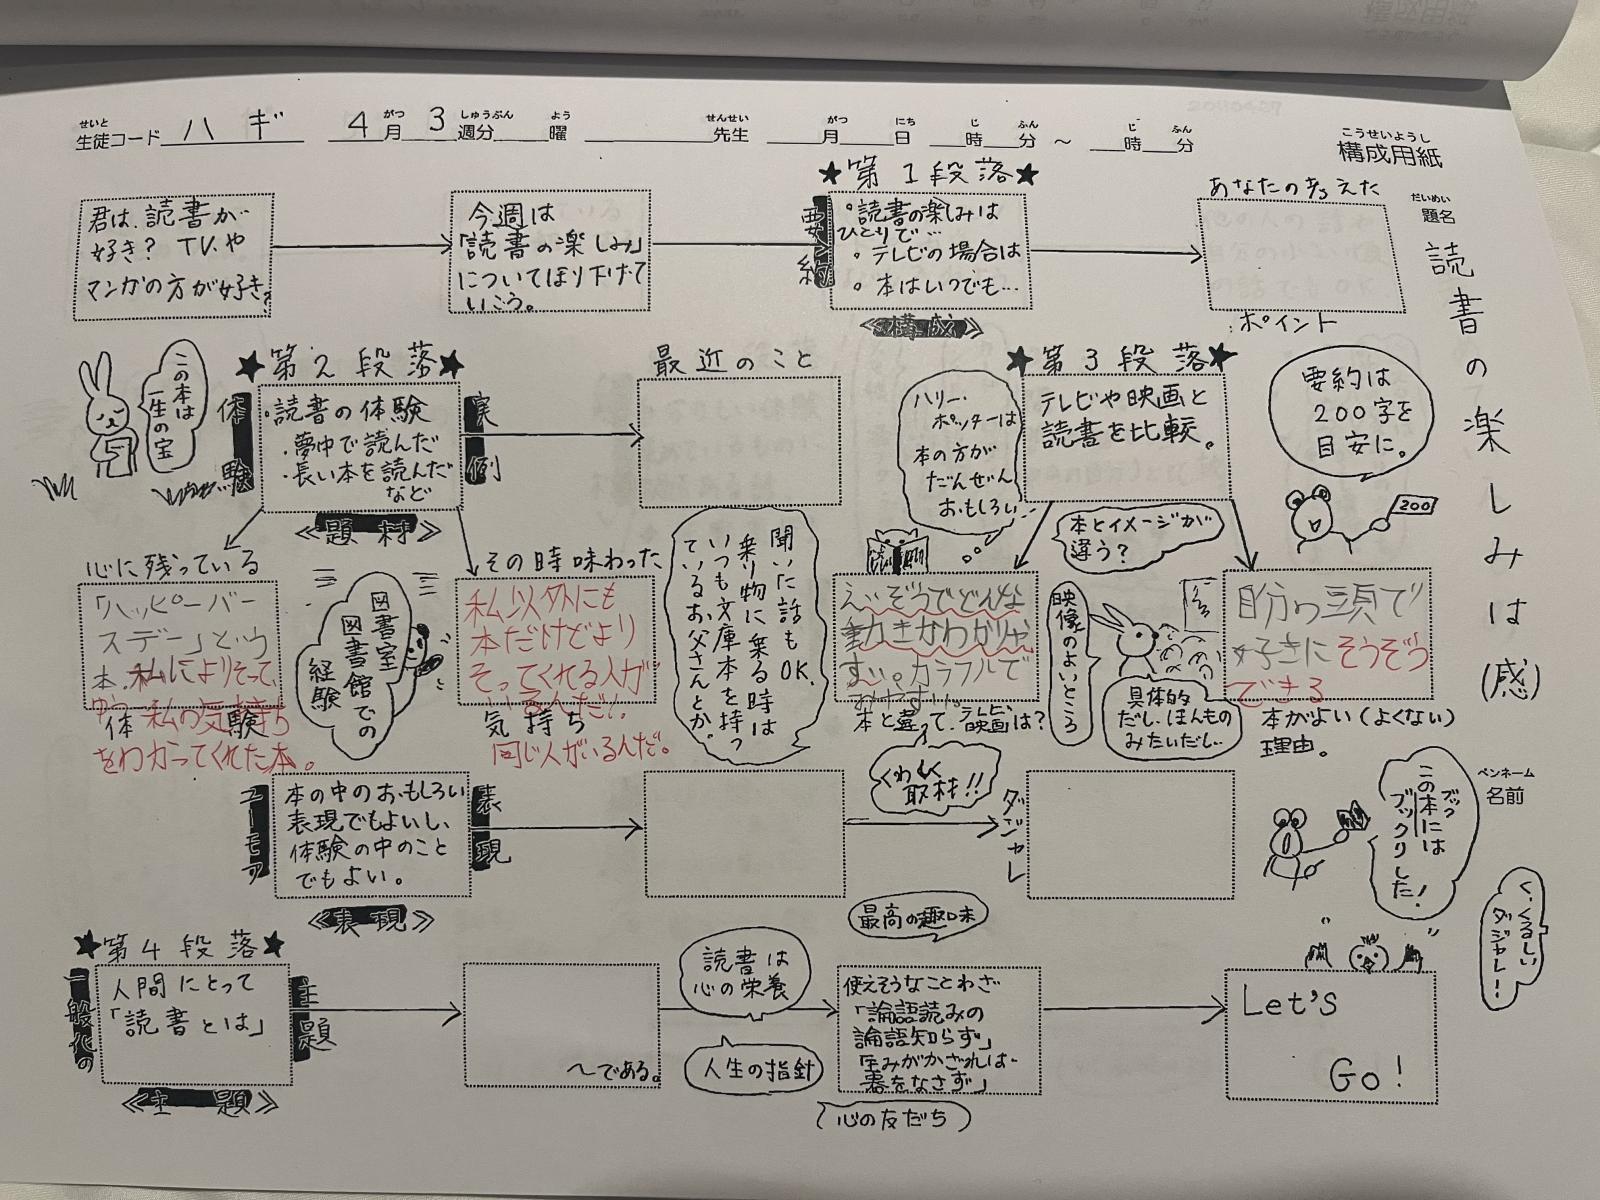 せいと がつ しゅうぶん よう せんせい がつ にち じ ふん じ ふん
生徒コード ハギ 4月 3週分 曜 先生 月 日 時 分 ～ 時 分
こうせいようし
構成用紙
だいめい
題名
読書の楽しみは(感)
君は、読書が
好き? TVや
マンガの方が好き?
今週は
「読書の楽しみ」
についてほり下げて
いこう。
★第1段落★
要約
・読書の楽しみは
ひとりで…
・テレビの場合は
・本はいつでも…
≪構成≫
あなたの考えた
ポイント
この本は
一生の宝
★第2段落★
体験
・読書の体験
・夢中で読んだ
・長い本を読んだ
など
実例
≪題材≫
最近のこと
ハリー・
ポッターは
本の方が
だんぜん
おもしろい
★第3段落★
テレビや映画と
読書を比較。
要約は
200字を
目安に。
200
心に残っている
「ハッピーバー
スデー」という
本。私によりそって、
私の気持ち
をわかってくれた本。
体験
図書室
図書館での
経験
その時味わった
私以外にも
本だけどより
そってくれる人が
いるんだ!
気持ち
同じ人がいるんだ。
聞いた話もOK.
乗り物に乗る時は
いつも文庫本を持っ
ているお父さんとか。
読書
本とイメージが
違う?
えいぞうでどんな
動きかわかりや
すい。カラフルで
みやすい。
本と違って、テレビ、映画は?
映像のよいところ
具体的
だし、ほんもの
みたいだし…
自分の頭で
好きにそうぞう
できる
本がよい(よくない)
理由。
ユーモア
本の中のおもしろい
表現でもよいし、
体験の中のこと
でもよい。
表現
≪表現≫
くわしく
取材!!
ダジャレ
ペンネーム
名前
ブック
この本には
ブックリした!
く、くるしい
ダジャレ!
★第4段落★
一般化の
人間にとって
「読書とは」
主題
≪主題≫
～である。
読書は
心の栄養
人生の指針
最高の趣味
使えそうなことわざ
「論語読みの
論語知らず」
玉みがかざれば
器をなさず」
心の友だち
Let's
Go!